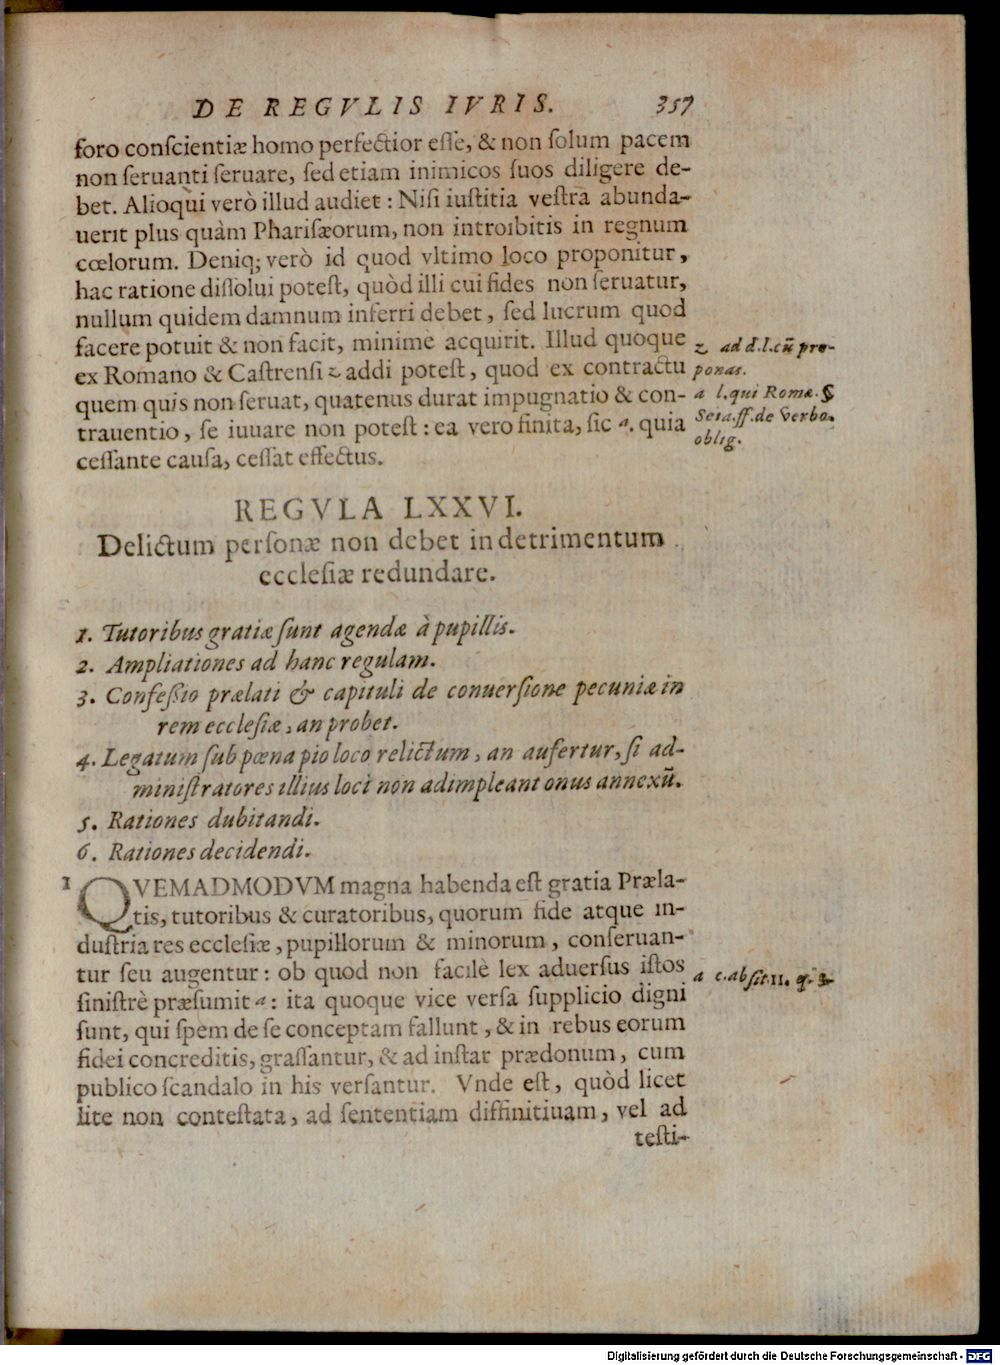 DE REGVLIS IVRIS. 357
foro conſcientiæ homo perfectior eſſe, & non ſolum pacem
non ſeruanti ſeruare, ſed etiam inimicos ſuos diligere de-
bet. Alioqui verò illud audiet: Niſi iuſtitia veſtra abunda-
uerit plus quàm Phariſæorum, non introibitis in regnum
cœlorum. Deniq; verò id quod vltimo loco proponitur,
hac ratione diſſolui poteſt, quòd illi cui fides non ſeruatur,
nullum quidem damnum inferri debet, ſed lucrum quod
facere potuit & non facit, minimè acquirit. Illud quoque
ex Romano & Caſtrenſi z addi poteſt, quod ex contractu
quem quis non ſeruat, quatenus durat impugnatio & con-
trauentio, ſe iuuare non poteſt: ea vero finita, ſic a. quia
ceſſante cauſa, ceſſat effectus.
z ad d.l.cū pro-
ponas.
a l.qui Romæ.§
Seia.ff.de verbo.
oblig.
REGVLA LXXVI.
Delictum perſonæ non debet in detrimentum
eccleſiæ redundare.
1. Tutoribus gratiæ ſunt agendæ à pupillis.
2. Ampliationes ad hanc regulam.
3. Confeſſio prælati & capituli de conuerſione pecuniæ in
rem eccleſiæ, an probet.
4. Legatum ſub pœna pio loco relictum, an aufertur, ſi ad-
miniſtratores illius loci non adimpleant onus annexū.
5. Rationes dubitandi.
6. Rationes decidendi.
1 QVEMADMODVM magna habenda eſt gratia Præla-
tis, tutoribus & curatoribus, quorum fide atque in-
duſtria res eccleſiæ, pupillorum & minorum, conſeruan-
tur ſeu augentur: ob quod non facilè lex aduerſus iſtos
ſiniſtrè præſumit a: ita quoque vice verſa ſupplicio digni
ſunt, qui ſpem de ſe conceptam fallunt, & in rebus eorum
fidei concreditis, graſſantur, & ad inſtar prædonum, cum
publico ſcandalo in his verſantur. Vnde eſt, quòd licet
lite non conteſtata, ad ſententiam diffinitiuam, vel ad
teſti-
a c.abſit.11. q. 3.
Digitalisierung gefördert durch die Deutsche Forschungsgemeinschaft - DFG